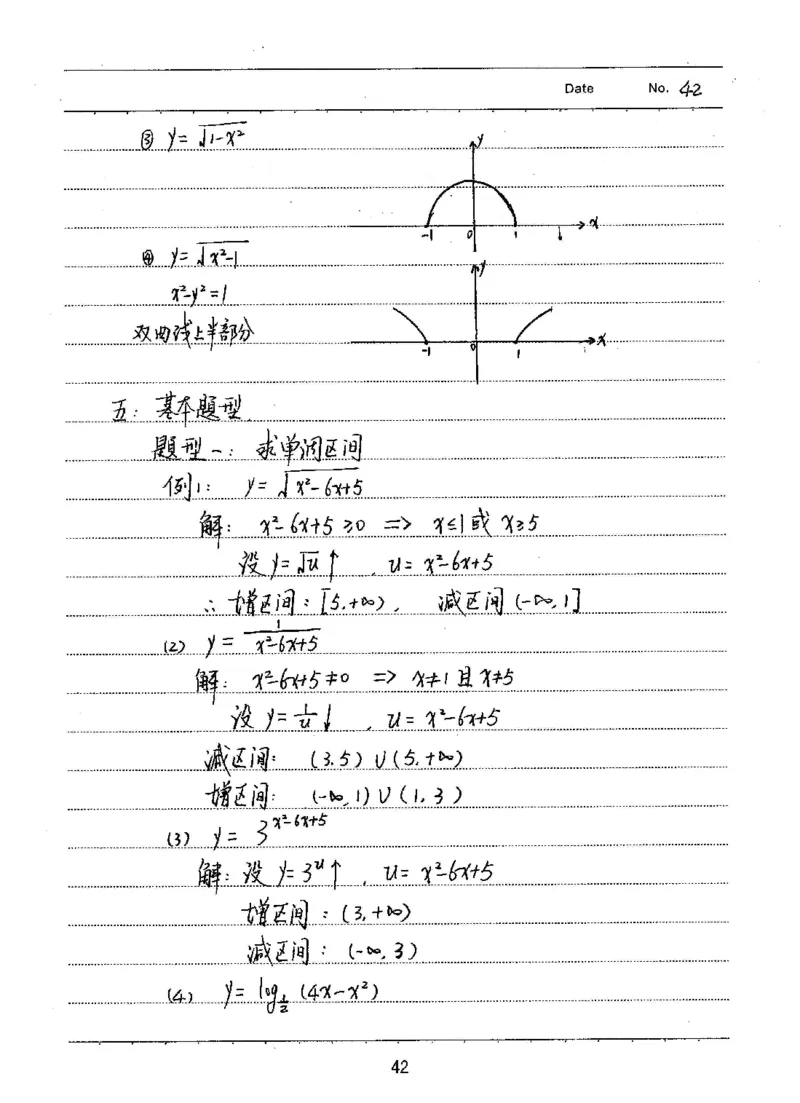 Date No. 42
③ y=√(1-x²)
y
-1 0 1 x
④ y=√(x²-1)
x²-y²=1
双曲线上半部分
y
-1 0 1 x
五: 基本题型
题型一: 求单调区间
例1: y=√(x²-6x+5)
解: x²-6x+5≥0 => x≤1或 x≥5
设 y=√u ↑, u=x²-6x+5
∴ 增区间: [5,+∞), 减区间 (-∞,1]
(2) y=1/(x²-6x+5)
解: x²-6x+5≠0 => x≠1 且 x≠5
设 y=1/u ↓, u=x²-6x+5
减区间: (3,5)∪(5,+∞)
增区间: (-∞,1)∪(1,3)
(3) y=3^(x²-6x+5)
解: 设 y=3^u ↑, u=x²-6x+5
增区间: (3,+∞)
减区间: (-∞,3)
(4) y=log_(1/2) (4x-x²)
42